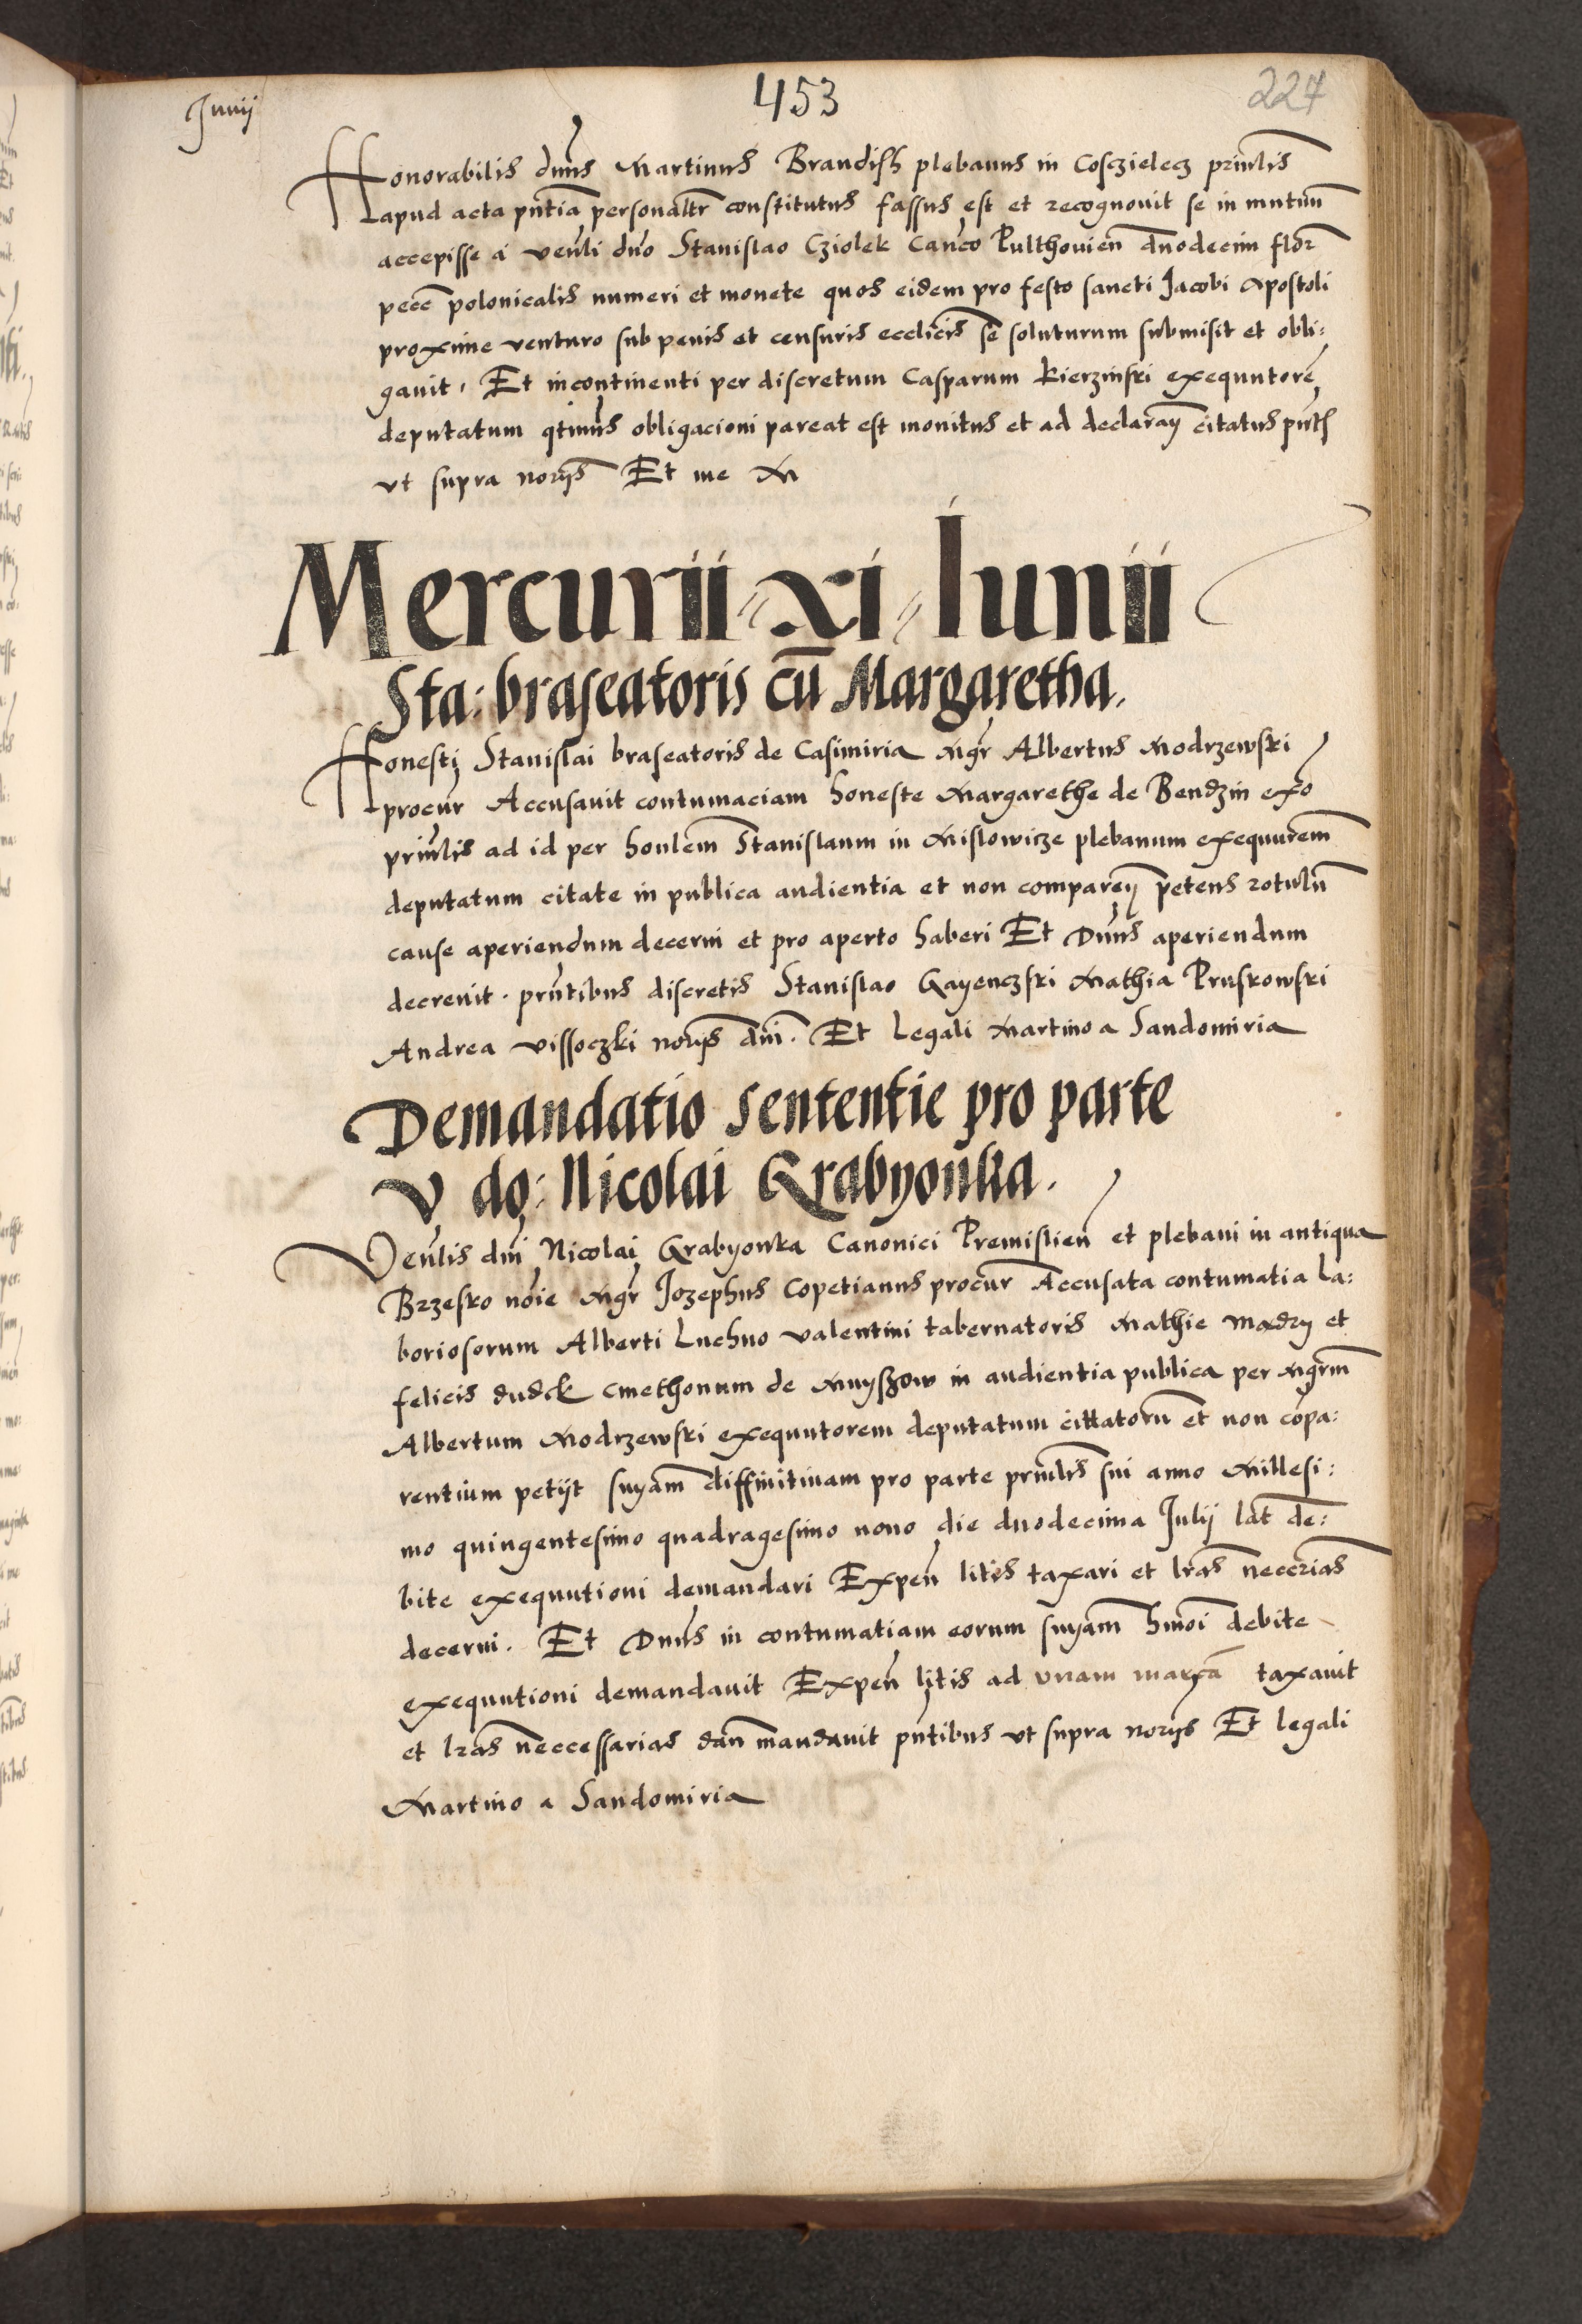 Junij
453
227
Honorabilis dn̄us Martinus Brandisch plebanus in Cosczielecz prin̄lis
apud acta pn̄tia personalr̄ constitutus fassus est et recognovit se in mutuū
accepisse a ven̄li dn̄o Stanislao Cziolek Can̄co Pulthovien̄ duodecim flor̄
pecc̄ polonicalis numeri et monete quos eidem pro festo sancti Jacobi Apostoli
proxime venturo sub penis et censuris ecclīcis se soluturum submisit et obli:
gavit. Et incontinenti per discretum Casparum Kierzinski exequutorē
deputatum qt̄inus obligacioni pareat est monitus et ad declaran̄ citatus
ut supra norijs Et me M
Mercurii xi Iunii
Sta: braseatoris cū Margaretha.
Honesti Stanislai braseatoris de Casimiria Mgr̄ Albertus Modrzewski
procur̄ Accusavit contumaciam honeste Margarethe de Bendzin exo
prin̄lis ad id per honlem̄ Stanislaum in Mislowicze plebanum exequurem̄
deputatum citate in publica audientia et non comparen̄ petens rotulū
cause aperiendum decerni et pro aperto haberi Et Dn̄us aperiendum
decrevit. prn̄tibus discretis Stanislao Gayenczki Mathia Pruskowski
Andrea vissoczki norijs dn̄i. Et legali Martino a Sandomiria
Demandatio sententie pro parte
V do: Nicolai Grabyonka.
Ven̄lis dn̄i Nicolai Grabyonka Canonici Premislien̄ et plebani in antiqua
Brzesko noīe Mgr̄ Jozephus Copetianus procur̄ Accusata contumatia la:
boriosorum Alberti Luchno valentini tabernatoris Mathie mądry et
felicis dudek Cmethonum de Muyszow in audientia publica per Mgrm̄
Albertum Modrzewski exequutorem deputatum cittatorū et non cōpa:
rentium petijt sn̄iam diffinitivam pro parte prin̄lis sui anno Millesi:
mo quingentesimo quadragesimo nono die duodecima Julij lat̄ de:
bite exequutioni demandari Expen̄ litis taxari et lr̄as neccrias̄
decerni. Et Dn̄us in contumatiam eorum sn̄iam hmōi debite
exequutioni demandavit Expen̄ litis ad unam marcā taxavit
et lr̄as neccessarias dan̄ mandavit pn̄tibus ut supra norijs Et legali
Martino a Sandomiria